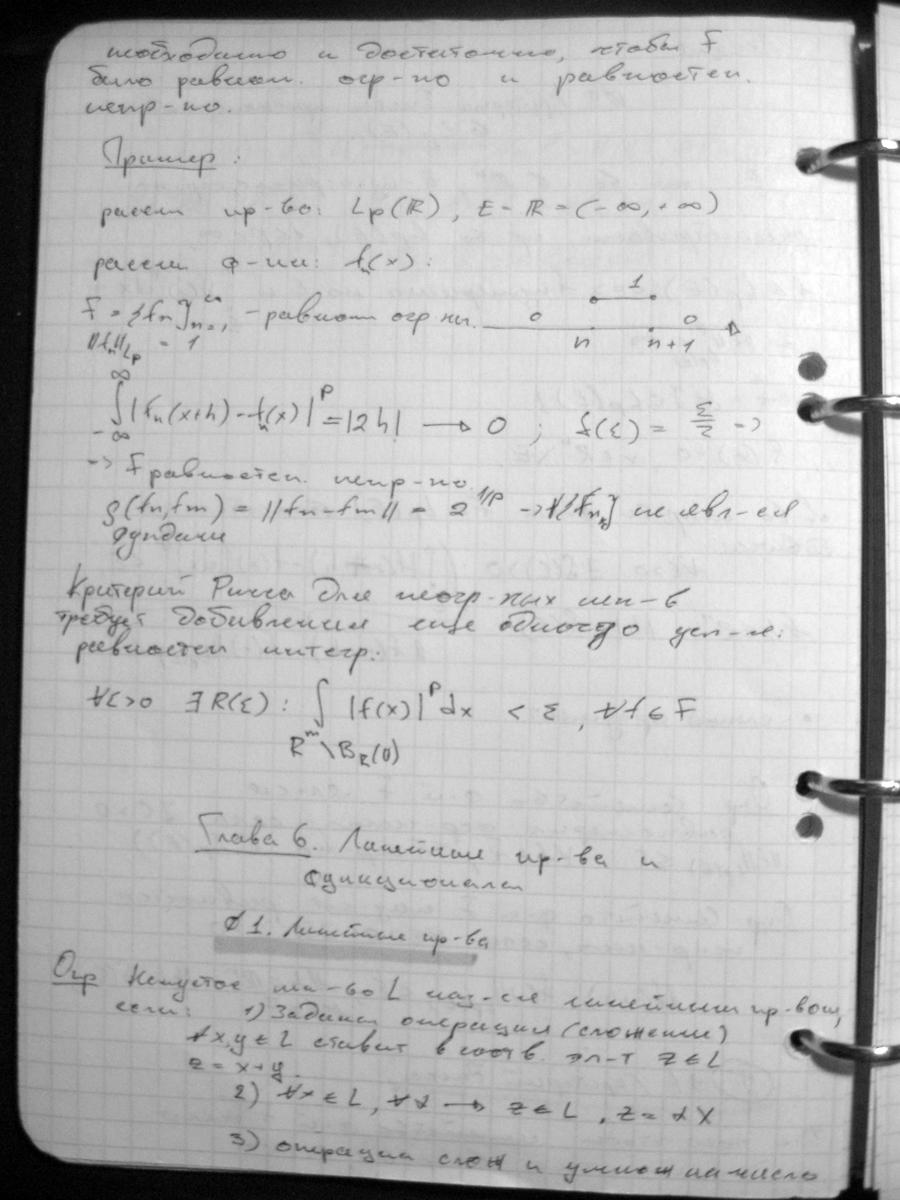 необходимо и достаточно, чтобы F
было равном. огр-но и равностеп.
непр-но.
Пример:
рассм пр-во: Lp(ℝ), E = ℝ = (-∞, +∞)
рассм ф-ии: fn(x):
F = {fn}∞n=1 - равном огр ны. 0 n 1 n+1 0
||fn||Lp = 1
∞∫-∞ |fn(x+h) - fn(x)|^p = |2h| → 0 ; δ(ε) = ε/2 →
→ F равностеп. непр-но.
ρ(fn, fm) = ||fn - fm|| = 2^1/p → ∀{fnk} не явл-ся
фундам
Критерий Рисса для неогр-ных мн-в
требует добавления еще одного усл-я:
равностеп интегр:
∀ε>0 ∃R(ε): ∫ |f(x)|^p dx < ε, ∀f∈F
R^m \ B_R(0)
Глава 6. Линейные пр-ва и
функционалы
§1. Линейные пр-ва
Опр Непустое мн-во L наз-ся линейным пр-вом,
если: 1) Задана операция (сложение)
∀x,y∈L ставит в соотв. эл-т z∈L
z = x+y.
2) ∀x∈L, ∀α → z∈L, z = αx
3) операции слож и умнож на число